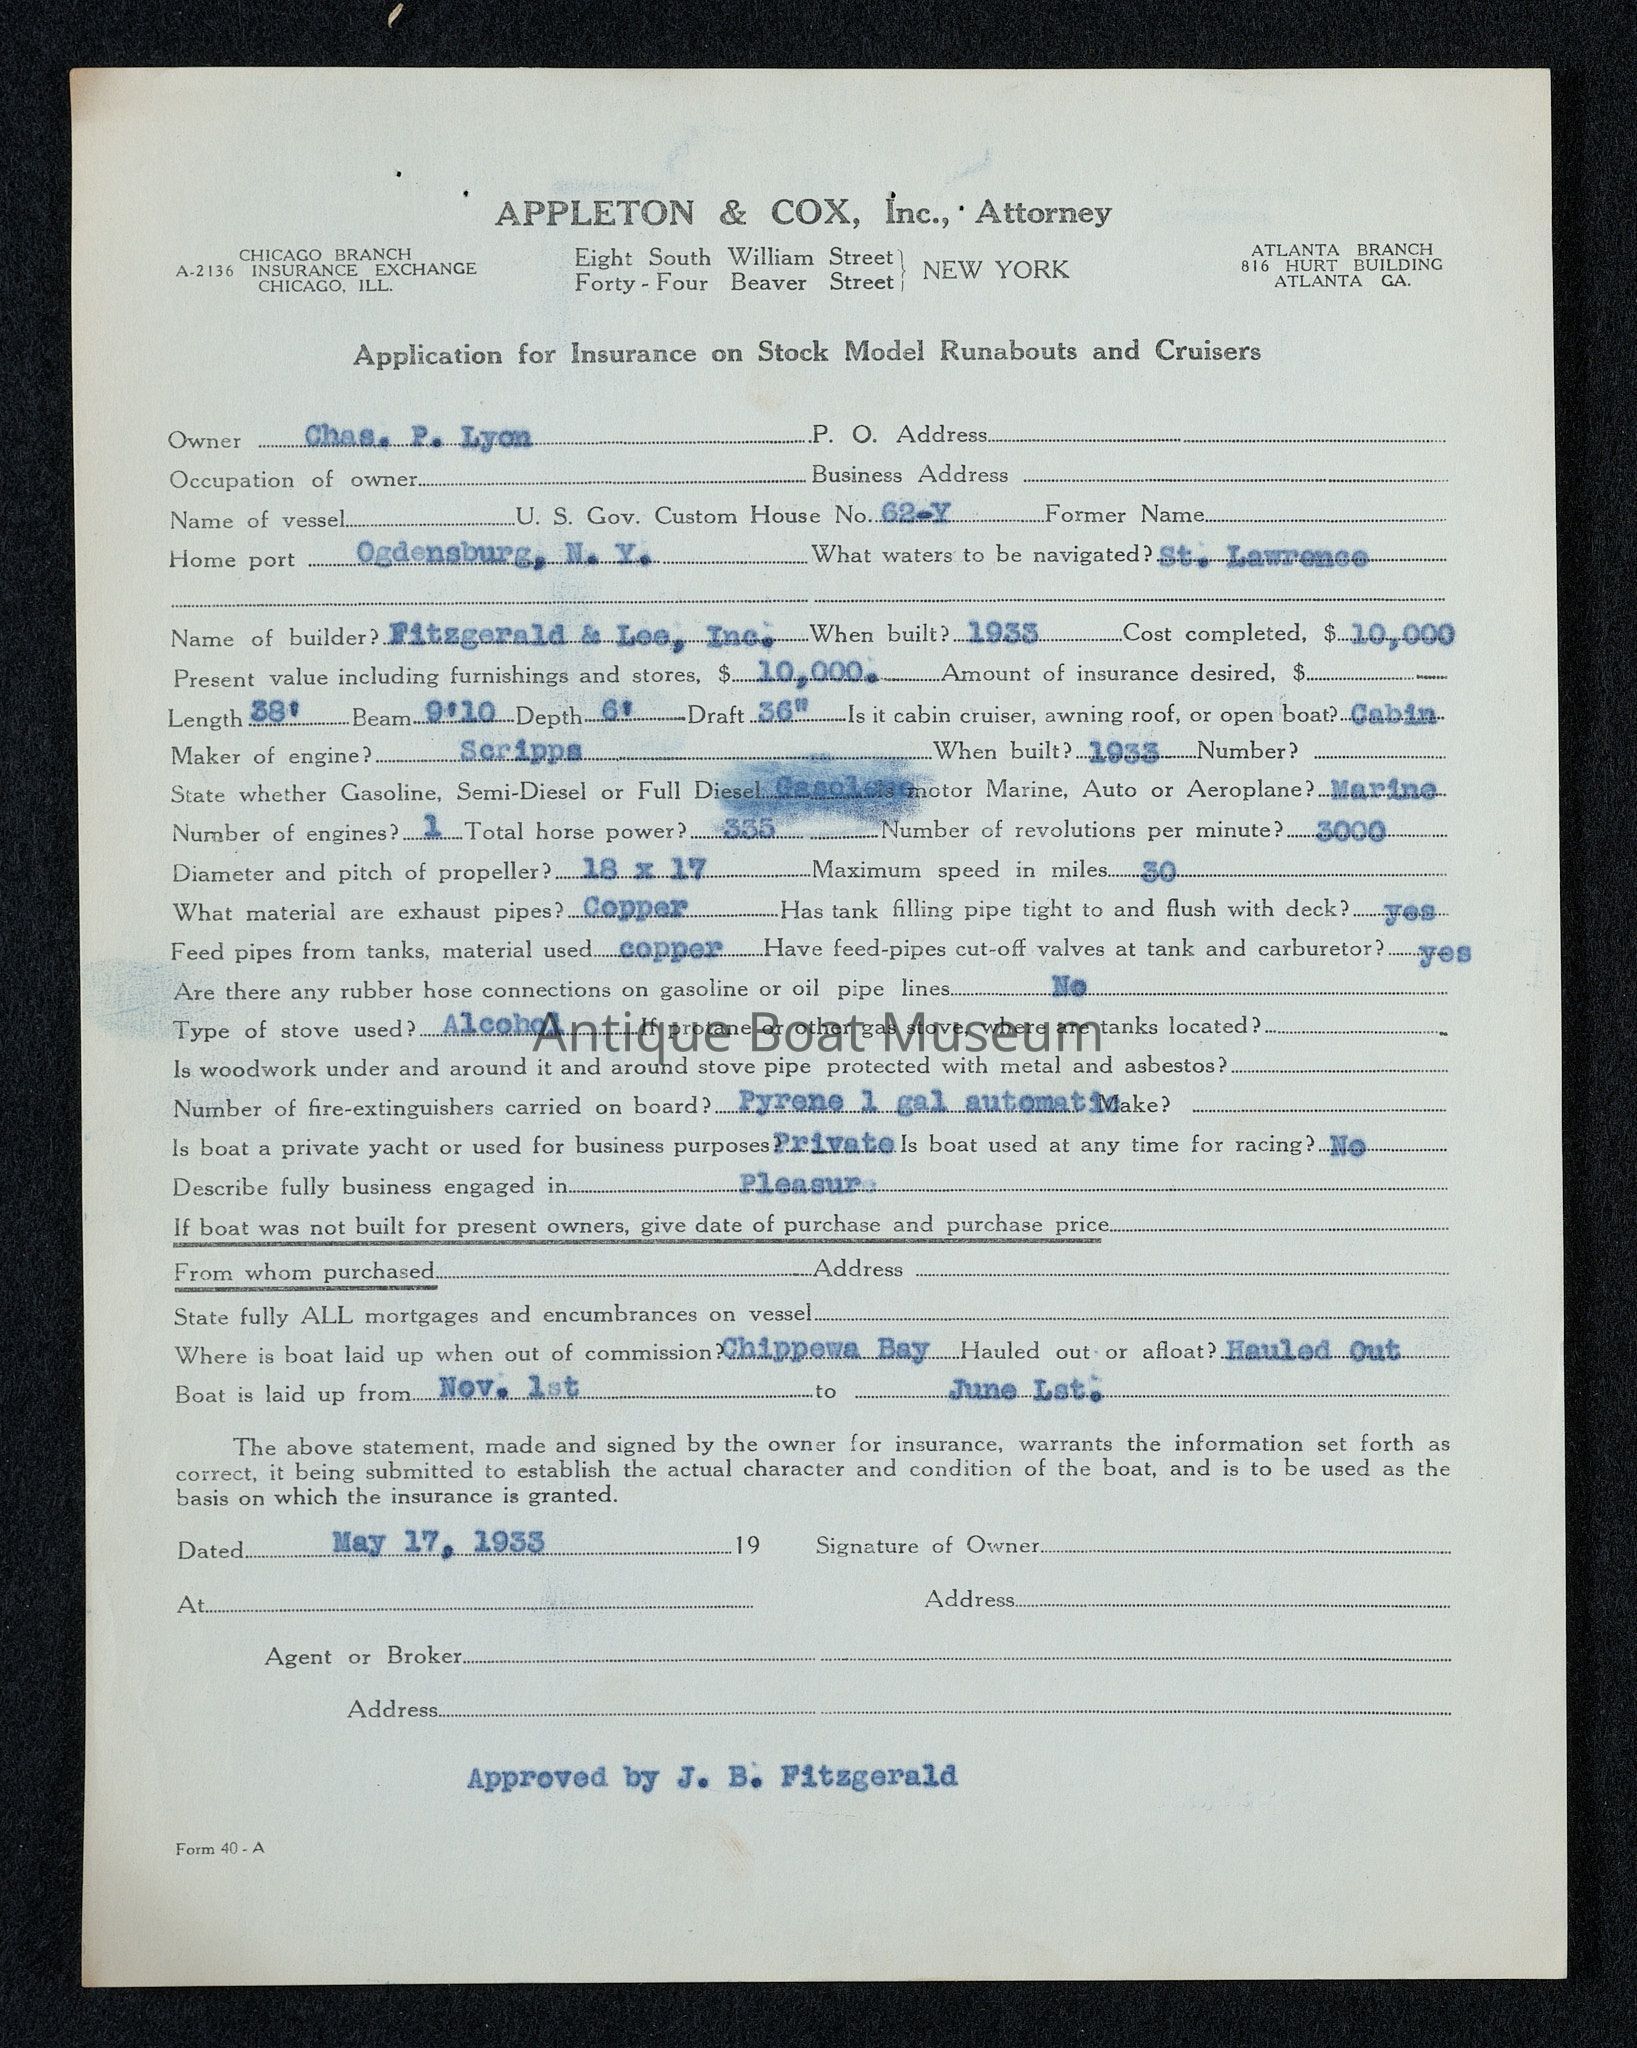 APPLETON & COX, Inc., Attorney
CHICAGO BRANCH
A-2136 INSURANCE EXCHANGE
CHICAGO, ILL.
Eight South William Street
Forty-Four Beaver Street
NEW YORK
ATLANTA BRANCH
816 HURT BUILDING
ATLANTA GA.
Application for Insurance on Stock Model Runabouts and Cruisers
Owner Chas. P. Lyon P. O. Address
Occupation of owner Business Address
Name of vessel U. S. Gov. Custom House No. 62-Y Former Name
Home port Ogdensburg, N. Y. What waters to be navigated? St. Lawrence
Name of builder? Fitzgerald & Lee, Inc. When built? 1933 Cost completed, $ 10,000
Present value including furnishings and stores, $ 10,000. Amount of insurance desired, $
Length 38' Beam 9'10 Depth 6' Draft 36" Is it cabin cruiser, awning roof, or open boat? Cabin
Maker of engine? Scripps When built? 1933 Number?
State whether Gasoline, Semi-Diesel or Full Diesel Gasolene Is motor Marine, Auto or Aeroplane? Marine
Number of engines? 1 Total horse power? 335 Number of revolutions per minute? 3000
Diameter and pitch of propeller? 18 x 17 Maximum speed in miles 30
What material are exhaust pipes? Copper Has tank filling pipe tight to and flush with deck? yes
Feed pipes from tanks, material used copper Have feed-pipes cut-off valves at tank and carburetor? yes
Are there any rubber hose connections on gasoline or oil pipe lines No
Type of stove used? Alcohol If protane or other gas stove, where are tanks located?
Antique Boat Museum
Is woodwork under and around it and around stove pipe protected with metal and asbestos?
Number of fire-extinguishers carried on board? Pyrene 1 gal automatic Make?
Is boat a private yacht or used for business purposes? Private Is boat used at any time for racing? No
Describe fully business engaged in Pleasure
If boat was not built for present owners, give date of purchase and purchase price
From whom purchased Address
State fully ALL mortgages and encumbrances on vessel
Where is boat laid up when out of commission? Chippewa Bay Hauled out or afloat? Hauled Out
Boat is laid up from Nov. 1st to June Lst.
The above statement, made and signed by the owner for insurance, warrants the information set forth as
correct, it being submitted to establish the actual character and condition of the boat, and is to be used as the
basis on which the insurance is granted.
Dated May 17, 1933 19 Signature of Owner
At Address
Agent or Broker
Address
Approved by J. B. Fitzgerald
Form 40 - A